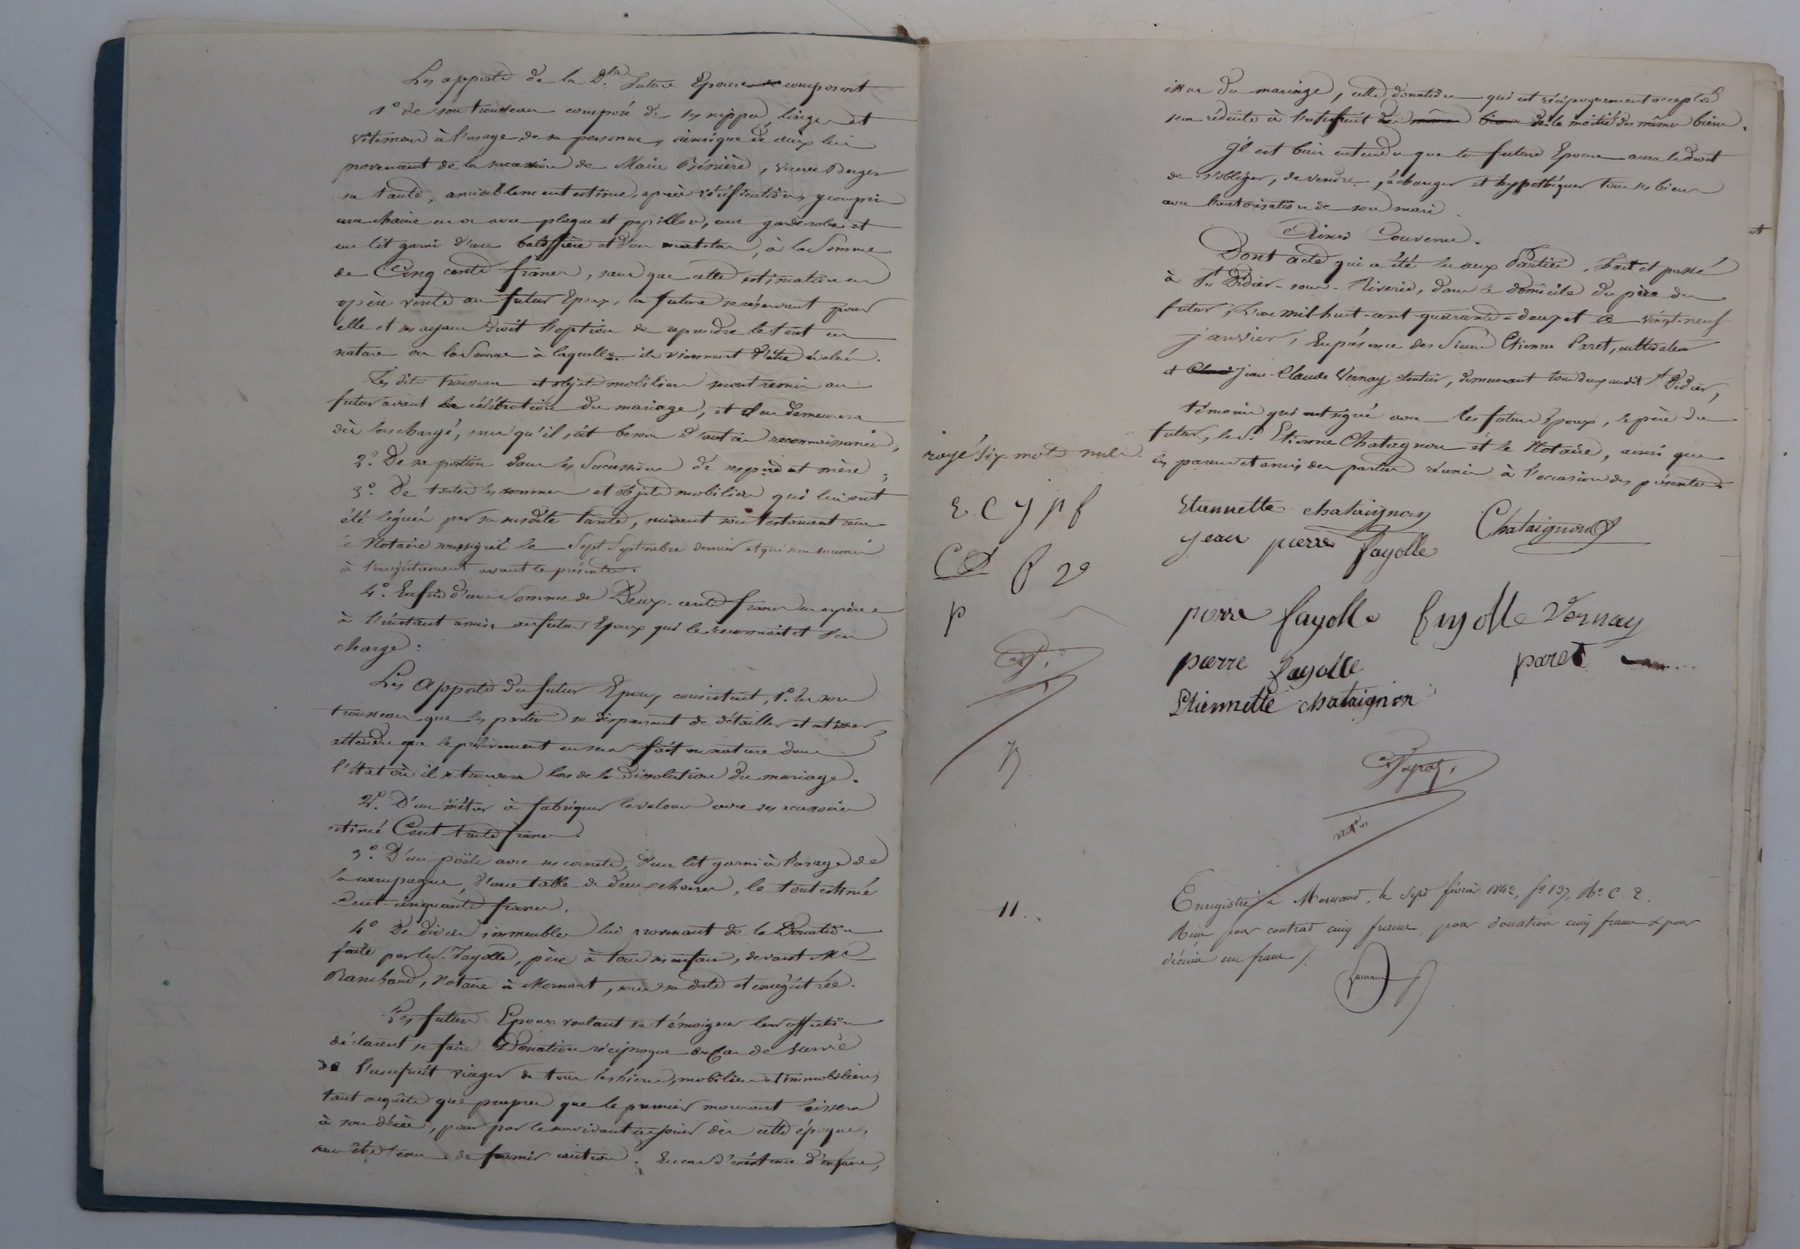 Les apports de la Dlle future Epouse se composent
1° de son trousseau composé de ses nippes, linges et
vêtemens à l'usage de sa personne, ainsi que de ceux lui
provenant de la succession de Marie Bénière, veuve Berger
sa tante, amiablement estimés, après vérification, y compris
une chaine en or avec plaque et papillon, une garderobe et
un lit garni d'une balossière et d'un matelas, à la Somme
de Cinq cents francs, sans que cette estimation en
opère vente au futur Epoux, la future se réservant pour
elle et ses ayans droit l'option de reprendre le tout en
nature ou la Somme à laquelle ils viennent d'être évalués.
Les dits trousseau et objets mobiliers seront remis au
futur avant la célébration du mariage, et il en demeurera
dès lors chargé, sans qu'il soit besoin d'autre reconnaissance;
2° De sa portion dans les Successions de ses père et mère;
3° De toutes les sommes et objets mobiliers qui lui ont
été légués par sa susdite tante, suivant son testament reçu
le Notaire soussigné le Sept Septembre dernier et qui sera soumis
à l'enregistrement avant le présent.
4° Enfin d'une Somme de Deux cents francs en espèces
à l'instant remise au futur Epoux qui le reconnait et s'en
charge:
Les Apports du futur Epoux consistent, 1° En son
trousseau que les parties se dispensent de détailler et estimer,
attendu que le prélèvement en sera fait en nature dans
l'état où il se trouvera lors de la dissolution du mariage.
2° D'un métier à fabriquer le velours avec ses accessoires
estimé Cent trente francs.
3° D'un poële avec ses cornets, d'un lit garni à l'usage de
la campagne, d'une table & deux chaises, le tout estimé
Cent cinquante francs.
4° De divers immeubles lui provenant de la Donation
faite par le Sr Fayolle, père à tous ses enfans, devant Me
Ranchaud, Notaire à Mornant, sous sa date et enregistrée.
Les futurs Epoux voulant se témoigner leur affection
déclarent se faire Donation réciproque en Cas de Survie
de l'usufruit viager de tous les biens, mobiliers et immobiliers,
tant acquets que propres que le premier mourant laissera
à son décès, pour par le survivant en jouir dès cette époque,
sans être tenu de fournir caution. En cas d'existence d'enfans,
issus du mariage, cette donation qui est réciproquement acceptée
sera réduite à l'usufruit des mêmes biens de la moitié des mêmes biens.
Il est bien entendu que la future Epouse aura le droit
de s'obliger, de vendre, échanger et hypothéquer tous ses biens
avec l'autorisation de son mari.
Ainsi Convenu.
Dont acte qui a été lu aux Parties. Fait et passé
à St Didier-sous-Riverie, dans le domicile du père du
futur, L'an mil huit-cent quarante-deux et le vingt-neuf
janvier, En présence des Sieurs Etienne Paret, cultivateur
et Jean-Claude Vernay, rentier, demeurant tous deux audit St Didier,
témoins qui ont signé avec les futurs Epoux, le père du
futur, le Sr Etienne Chataignon et le Notaire, ainsi que
les parens et amis des parties réunis à l'occasion des présentes.
rayé six mots nuls.
E C J P f
CD f v
P
Etiennette chataignon Chataignon
jean pierre fayolle
pierre fayolle fayolle Vernay
pierre fayolle paret
Etiennette chataignon
11
Enregistré à Mornant, le Sept février 1842, f° 137, Ro C. 2.
Reçu pour contrat cinq francs, pour donation cinq francs & pour
décime un franc